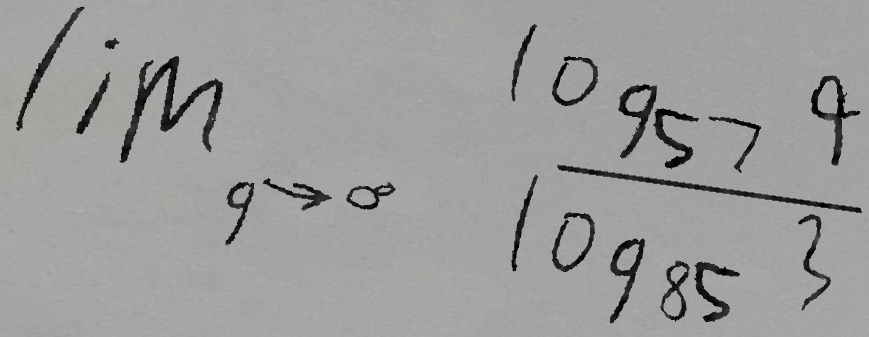 \lim_{q \to \infty} \frac{\log_{57} 9}{\log_{85} 3}